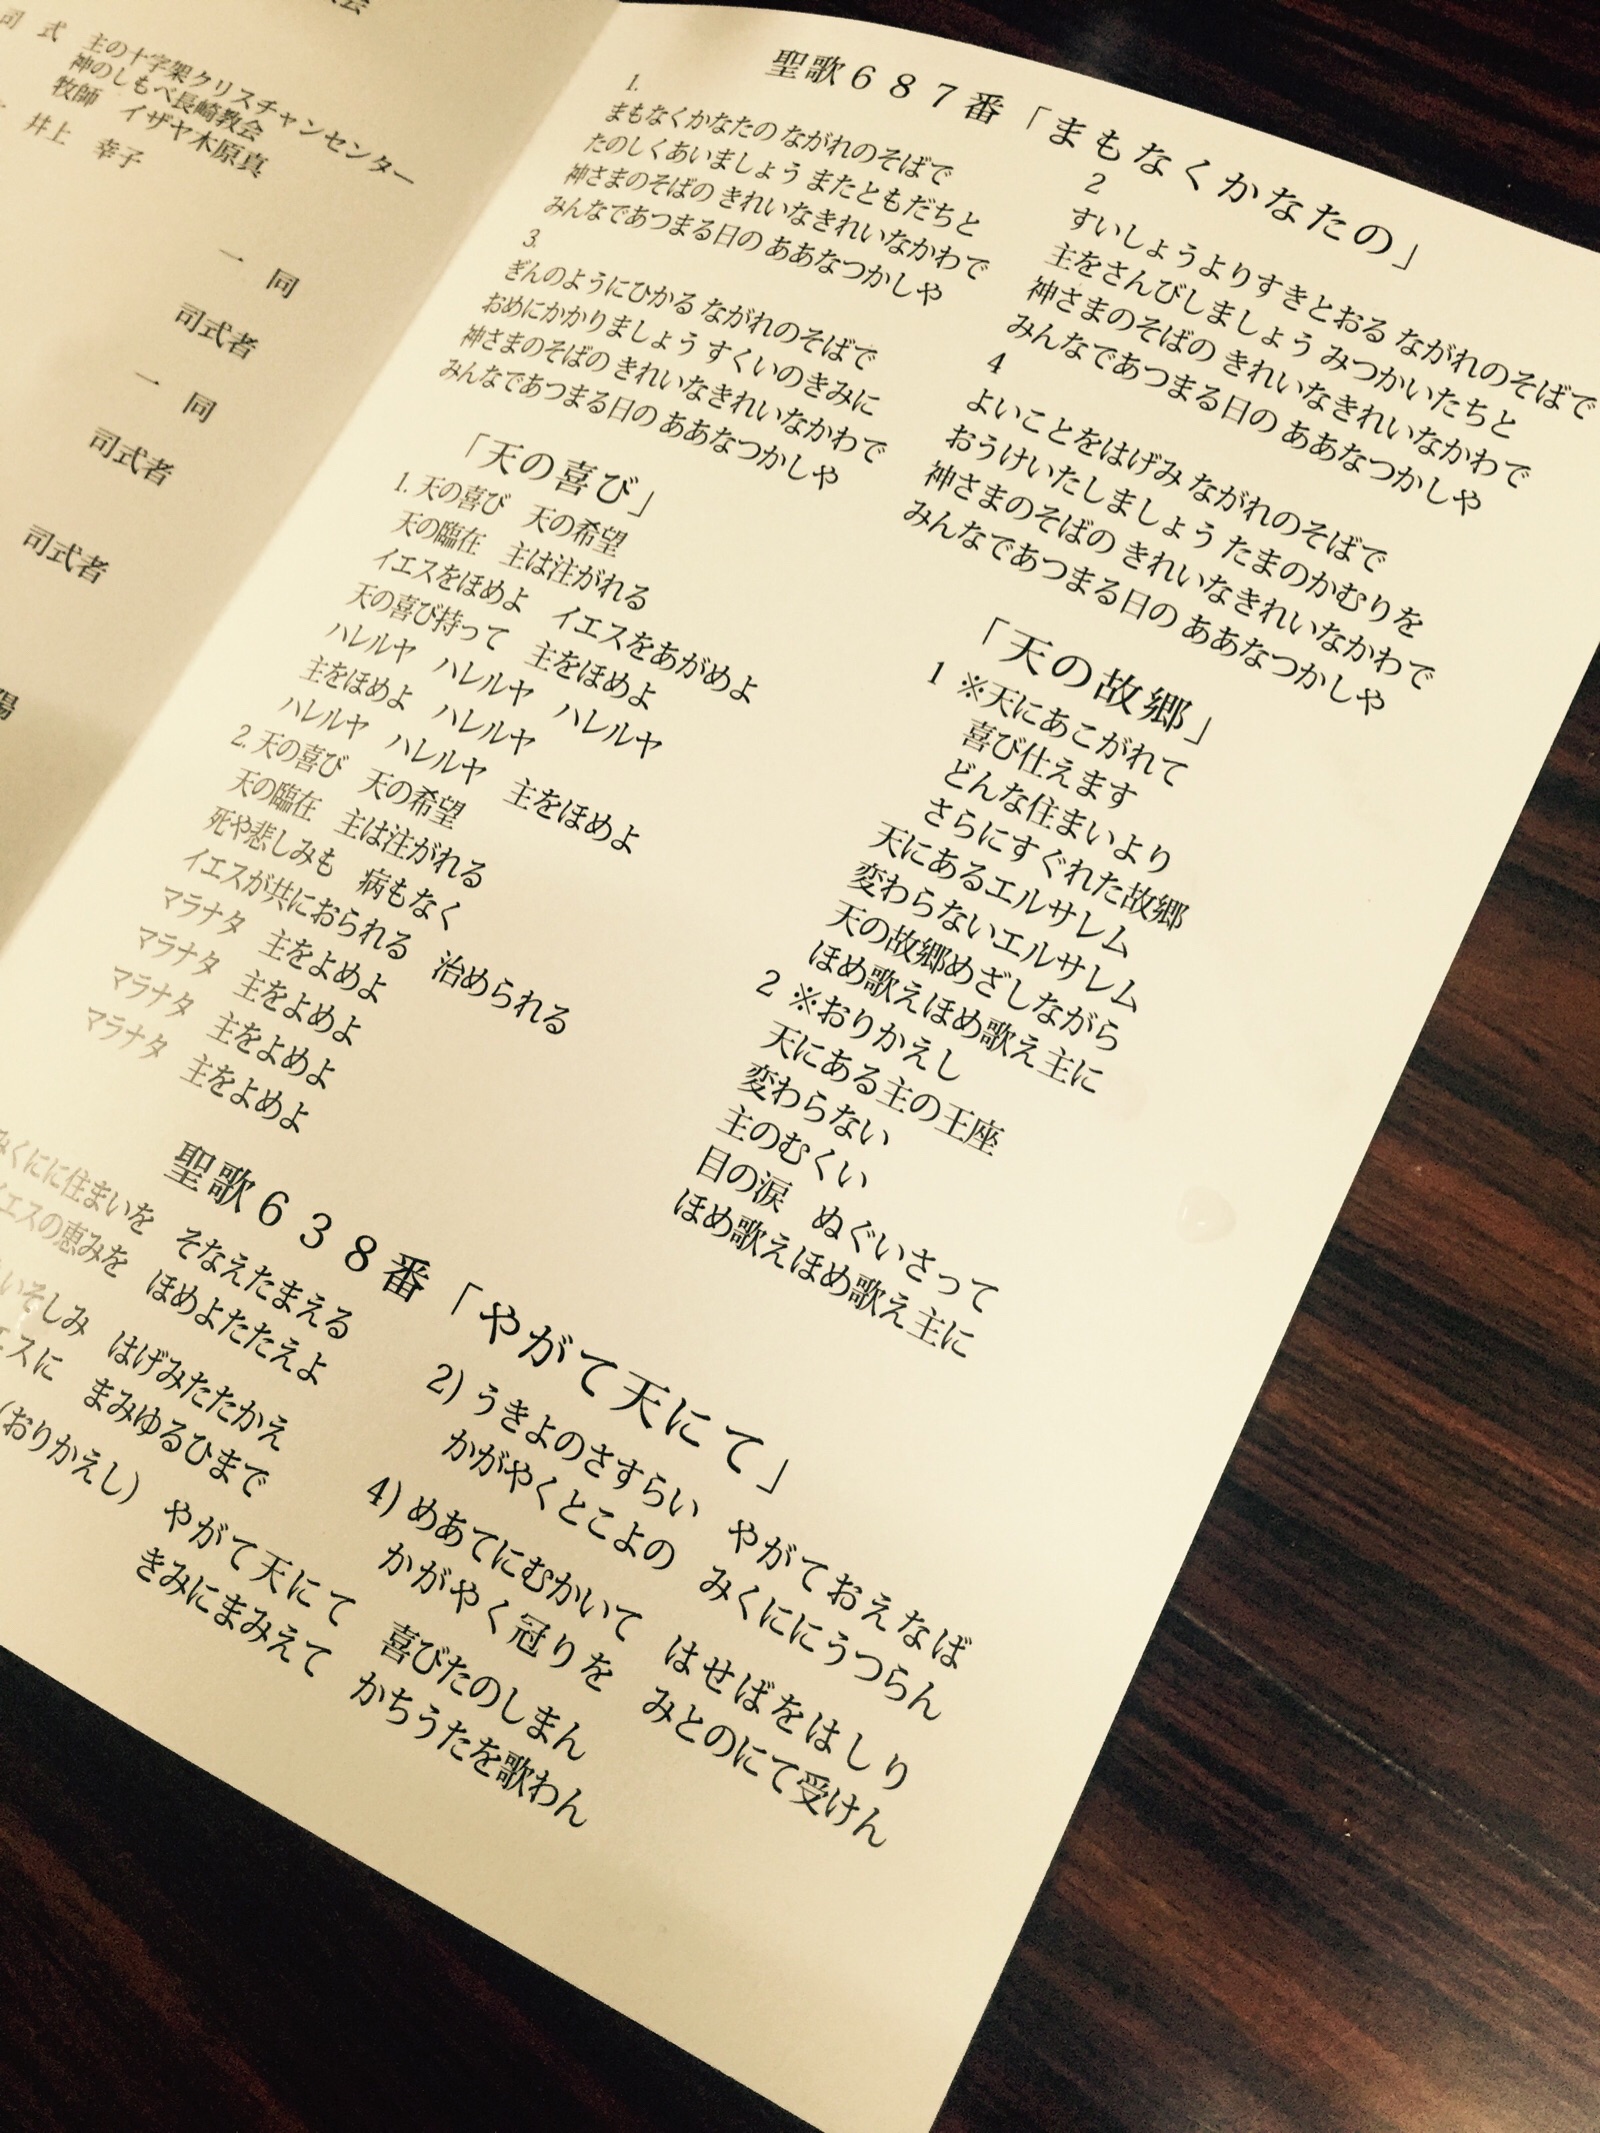 司式 主の十字架クリスチャンセンター
神のしもべ長崎教会
牧師 イザヤ木原真
井上 幸子
一同
司式者
一同
司式者
司式者
聖歌687番「まもなくかなたの」
1.
まもなくかなたの ながれのそばで
たのしくあいましょう またともだちと
神さまのそばの きれいなきれいなかわで
みんなであつまる日の ああなつかしや
2
すいしょうよりすきとおる ながれのそばで
主をさんびしましょう みつかいたちと
神さまのそばの きれいなきれいなかわで
みんなであつまる日の ああなつかしや
3.
ぎんのようにひかる ながれのそばで
おめにかかりましょう すくいのきみに
神さまのそばの きれいなきれいなかわで
みんなであつまる日の ああなつかしや
4
よいことをはげみ ながれのそばで
おうけいたしましょう たまのかむりを
神さまのそばの きれいなきれいなかわで
みんなであつまる日の ああなつかしや
「天の喜び」
1. 天の喜び 天の希望
天の臨在 主は注がれる
イエスをほめよ イエスをあがめよ
天の喜び持って 主をほめよ
ハレルヤ ハレルヤ ハレルヤ
主をほめよ ハレルヤ
ハレルヤ ハレルヤ 主をほめよ
2. 天の喜び 天の希望
天の臨在 主は注がれる
死や悲しみも 病もなく
イエスが共におられる 治められる
マラナタ 主をよめよ
マラナタ 主をよめよ
マラナタ 主をよめよ
マラナタ 主をよめよ
「天の故郷」
1 ※天にあこがれて
喜び仕えます
どんな住まいより
さらにすぐれた故郷
天にあるエルサレム
変わらないエルサレム
天の故郷めざしながら
ほめ歌えほめ歌え主に
2 ※おりかえし
天にある主の王座
変わらない
主のむくい
目の涙 ぬぐいさって
ほめ歌えほめ歌え主に
聖歌638番「やがて天にて」
みくにに住まいを そなえたまえる
イエスの恵みを ほめよたたえよ
2) うきよのさすらい やがておえなば
かがやくとこよの みくににうつらん
いそしみ はげみたたかえ
エスに まみゆるひまで
4) めあてにむかいて はせばをはしり
かがやく冠りを みとのにて受けん
(おりかえし) やがて天にて 喜びたのしまん
きみにまみえて かちうたを歌わん